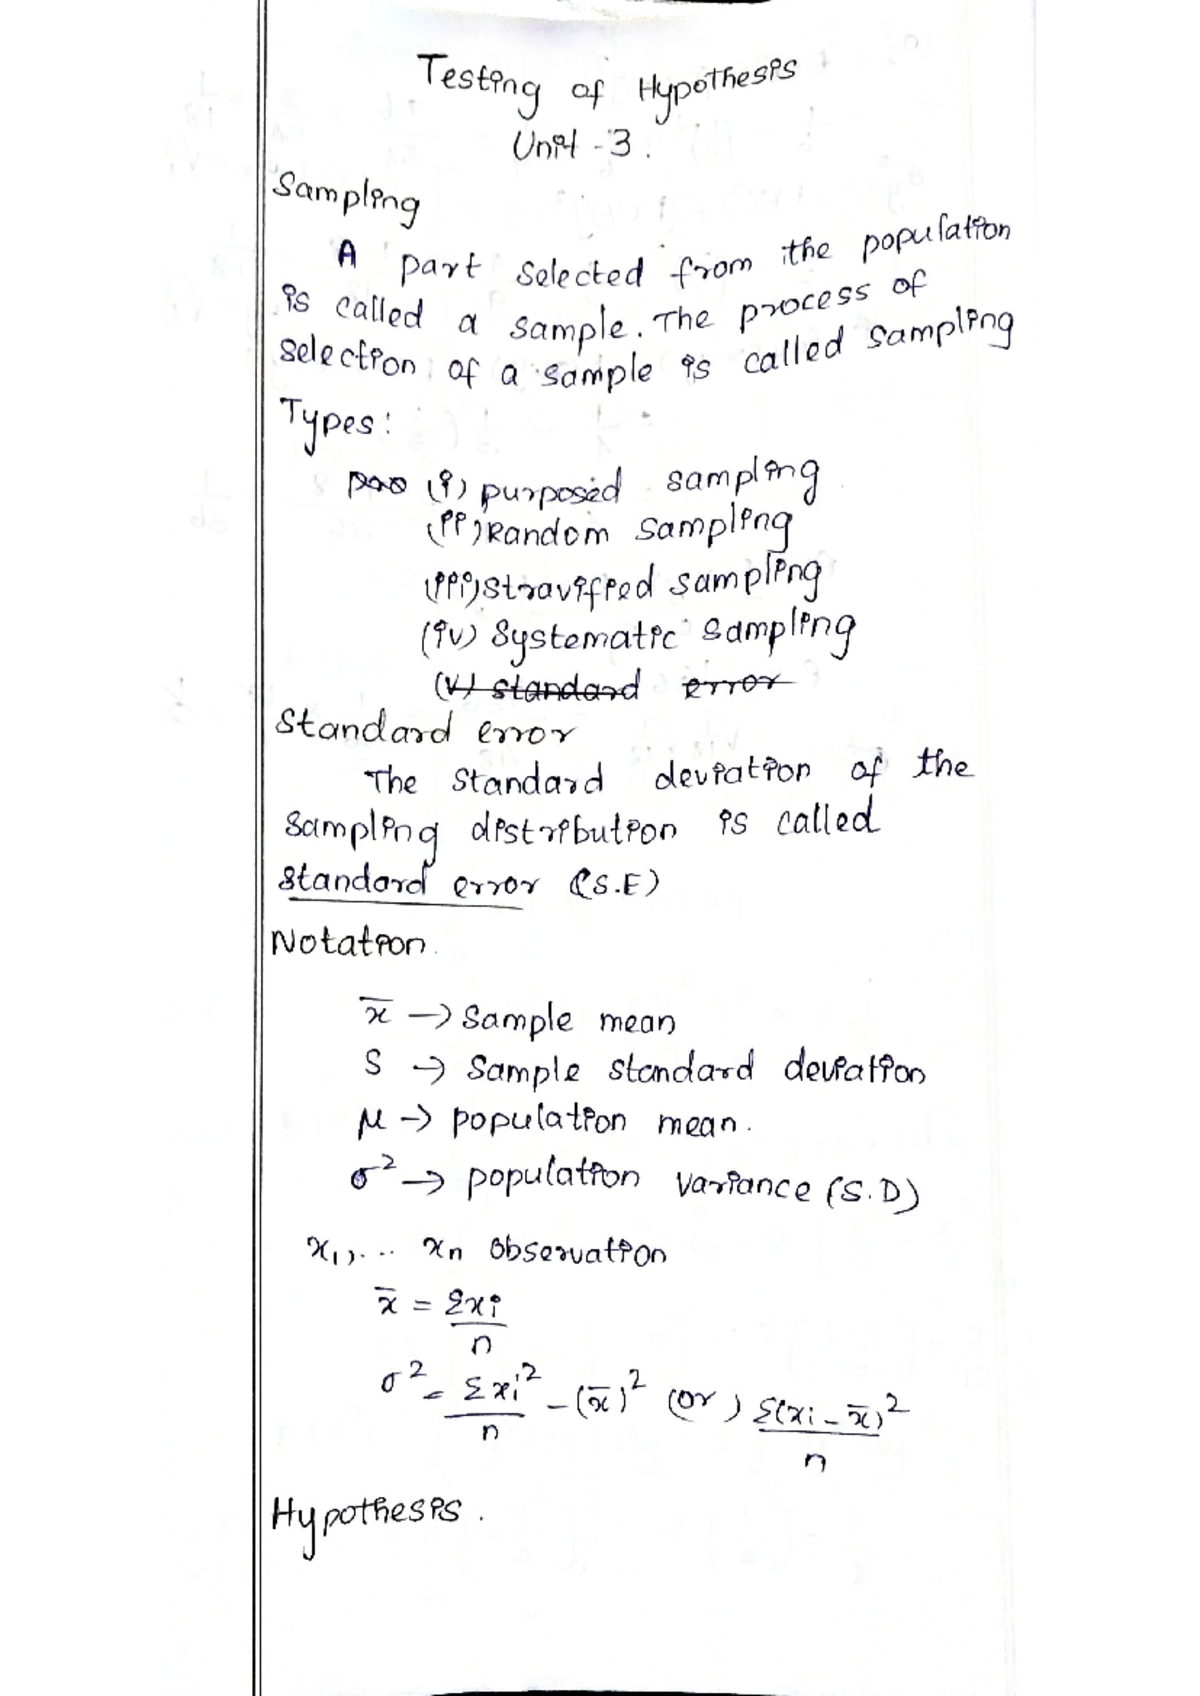 Testing of Hypothesis
Unit - 3.
Sampling
A part selected from the population
is called a sample. The process of
selection of a sample is called sampling
Types:
(i) purposed sampling
(ii) Random sampling
(iii) Stravified sampling
(iv) Systematic sampling
(v) standard error
Standard error
The standard deviation of the
sampling distribution is called
standard error (S.E)
Notation.
x̄ → Sample mean
S → Sample standard deviation
μ → population mean.
σ² → population variance (S.D)
x₁, ... xn observation
x̄ = Σxi / n
σ² = Σxi² / n - (x̄)² (or) Σ(xi - x̄)² / n
Hypothesis.